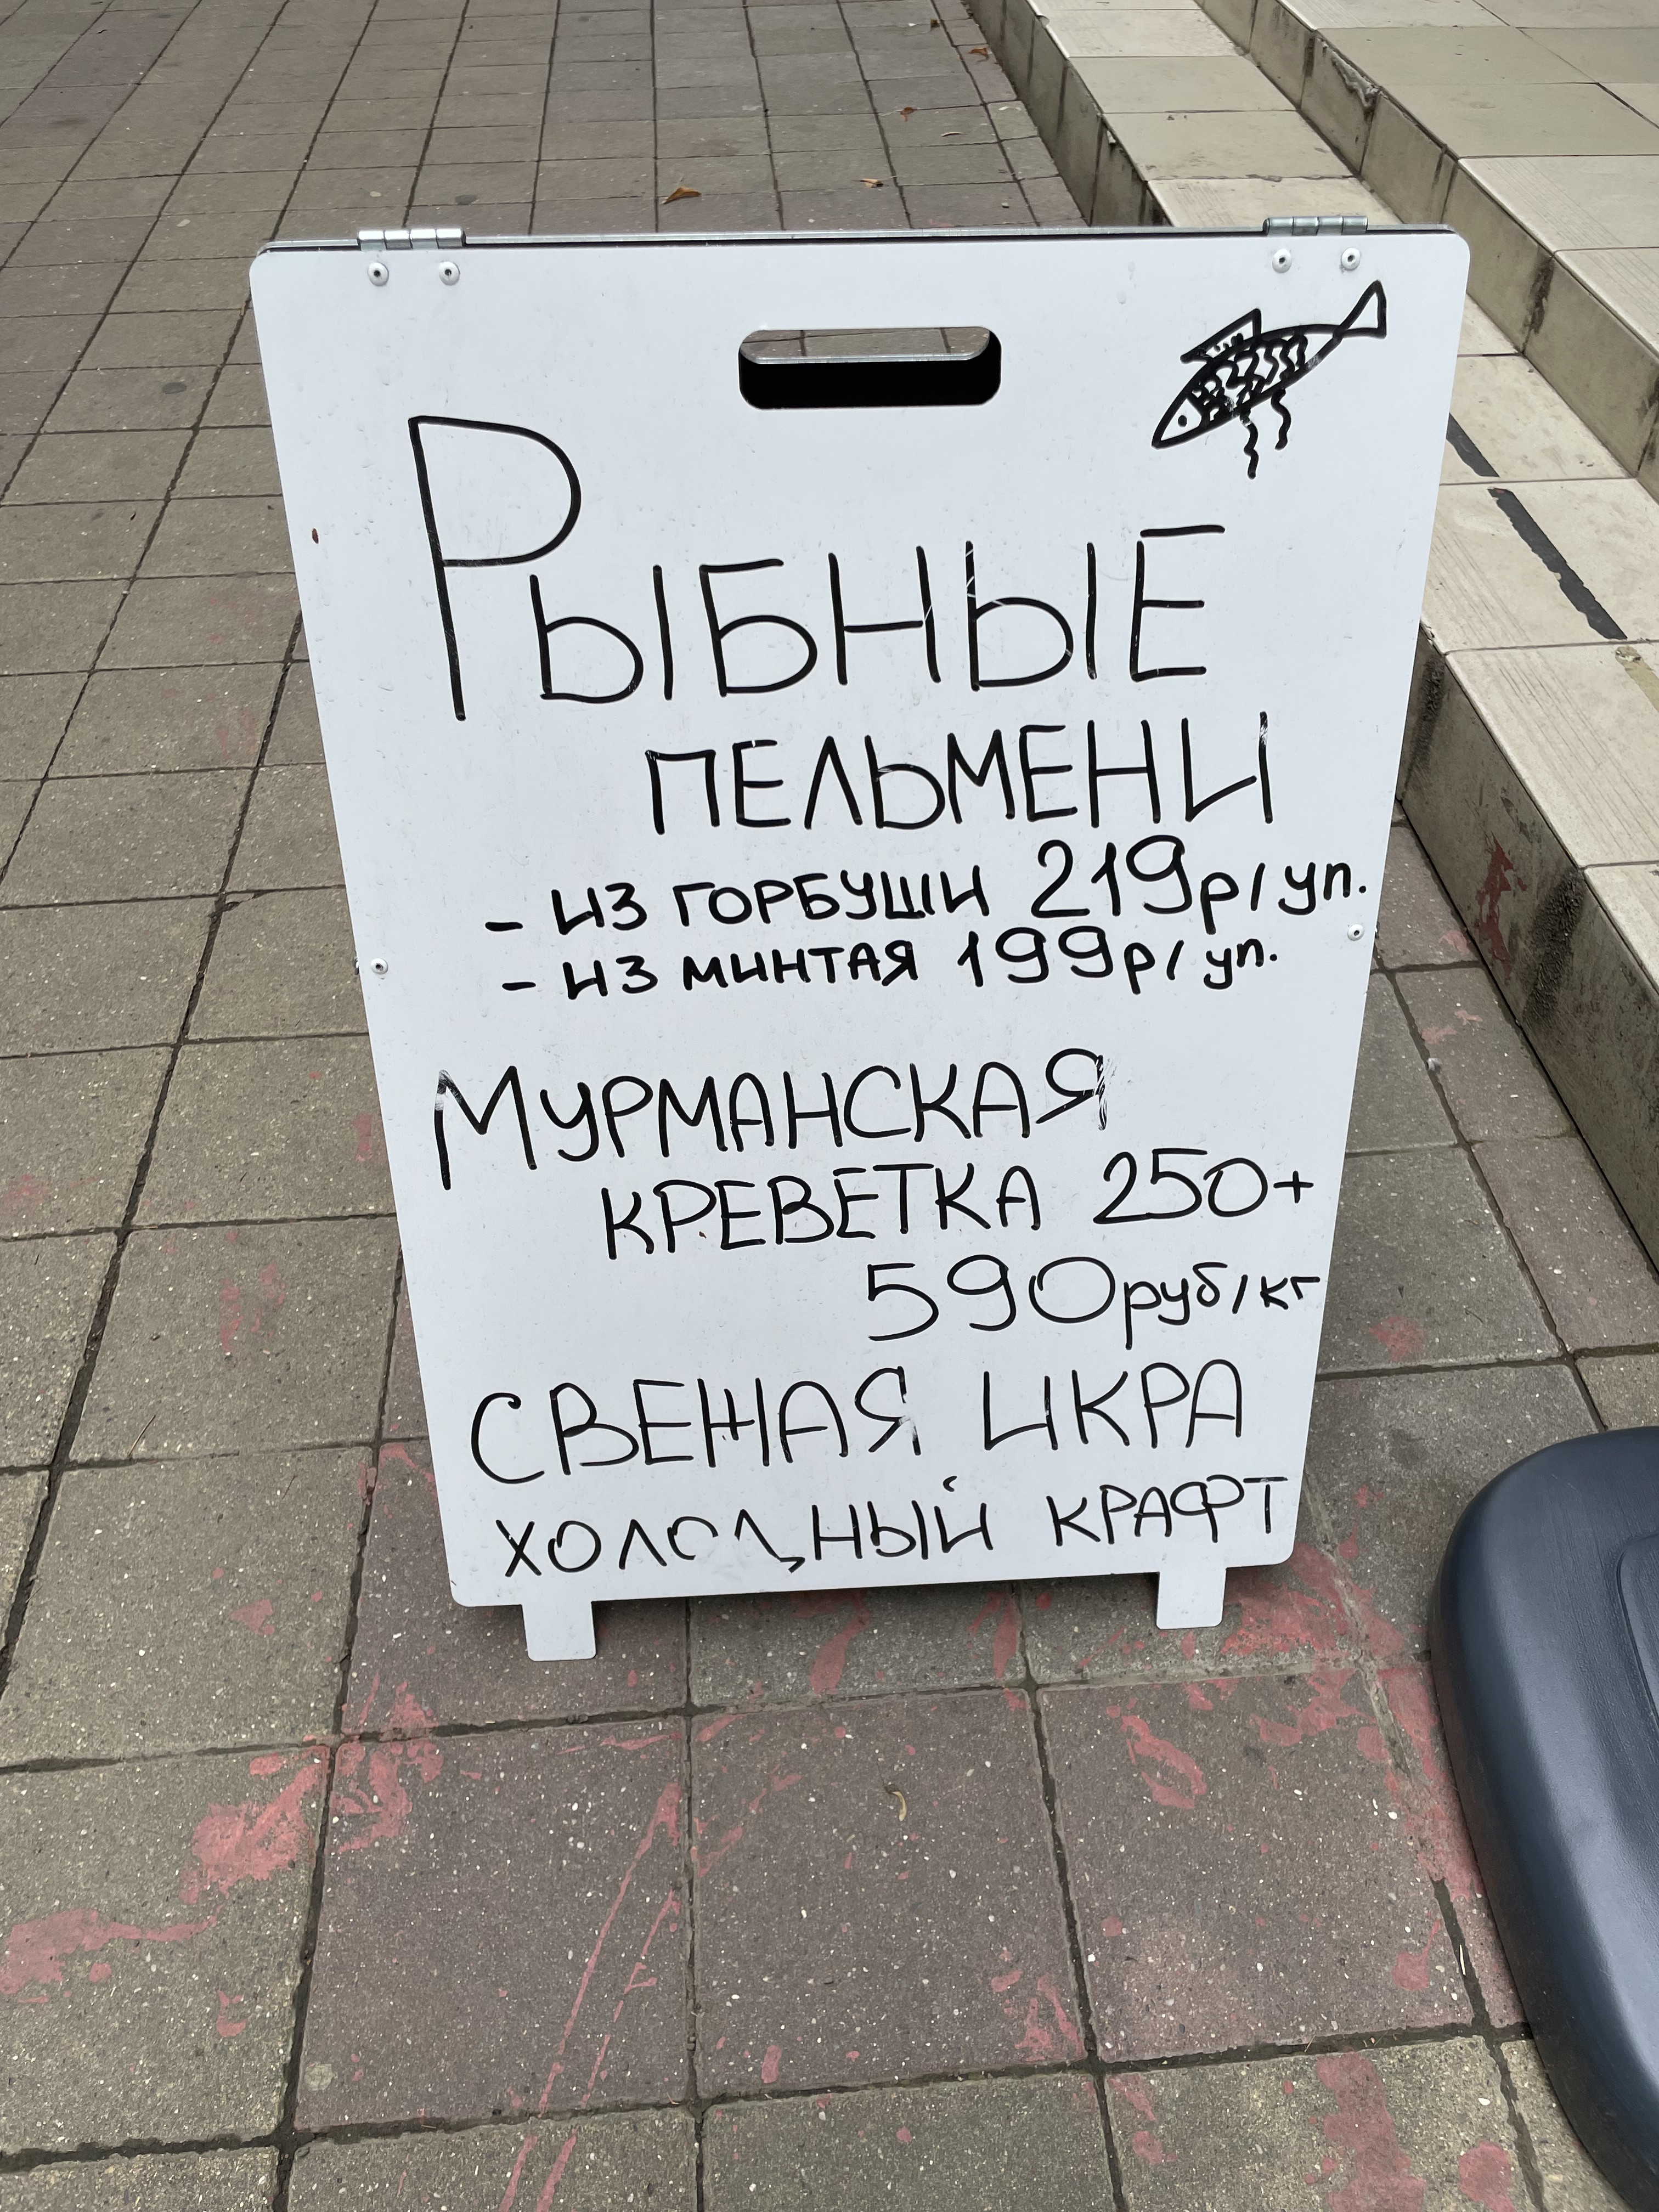 РЫБНЫЕ
ПЕЛЬМЕНИ
- ИЗ ГОРБУШИ 219р/уп.
- ИЗ МИНТАЯ 199р/уп.
МУРМАНСКАЯ
КРЕВЕТКА 250+
590руб/кг
СВЕЖАЯ ИКРА
ХОЛОДНЫЙ КРАФТ